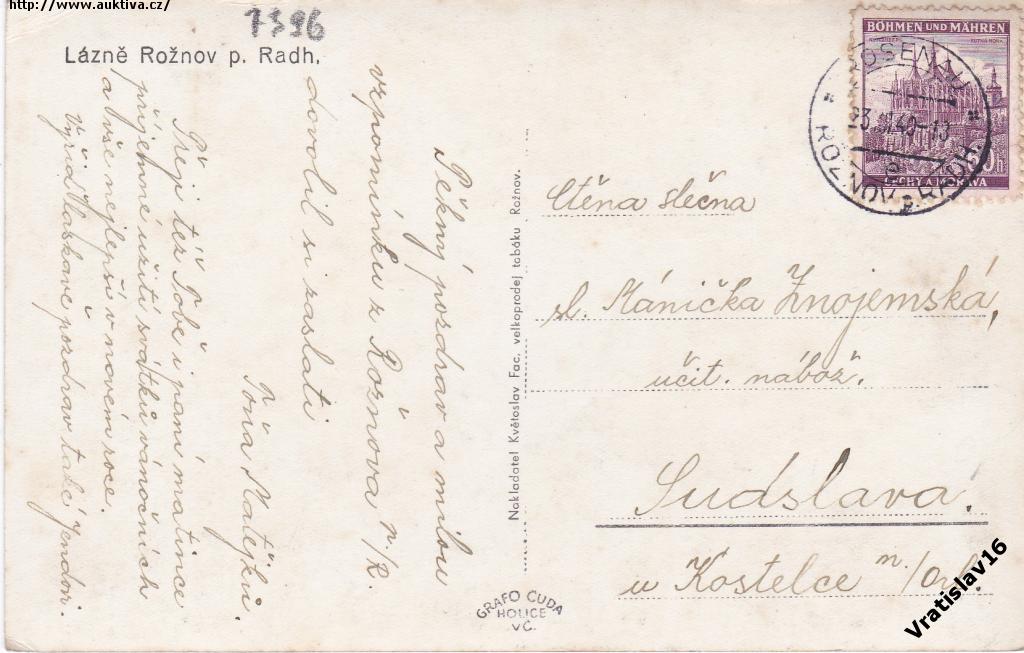 http://www.auktiva.cz/
7396
Lázně Rožnov p. Radh.
Pěkný pozdrav a milou
vzpomínku z Rožnova n./R.
dovolil si zaslati
Toňa Matějků
Přeji též Tobě i paní matince
příjemné užití svátků vánočních
a vše nejlepší v novém roce.
Vyřiď laskavě pozdrav také Jendovi.
Nakladatel Květoslav Fac, velkoprodej tabáku Rožnov.
GRAFO ČUDA
HOLICE
VČ.
BÖHMEN UND MÄHREN
KUTNÁ HORA
ČECHY A MORAVA
ROSENAU
23. 40-13
ROŽNOV p. RADH.
Ctěna slečna
sl. Mánička Znojemská,
učit. nábož.
Sudslava.
u Kostelce n./Orl.
Vratislav16